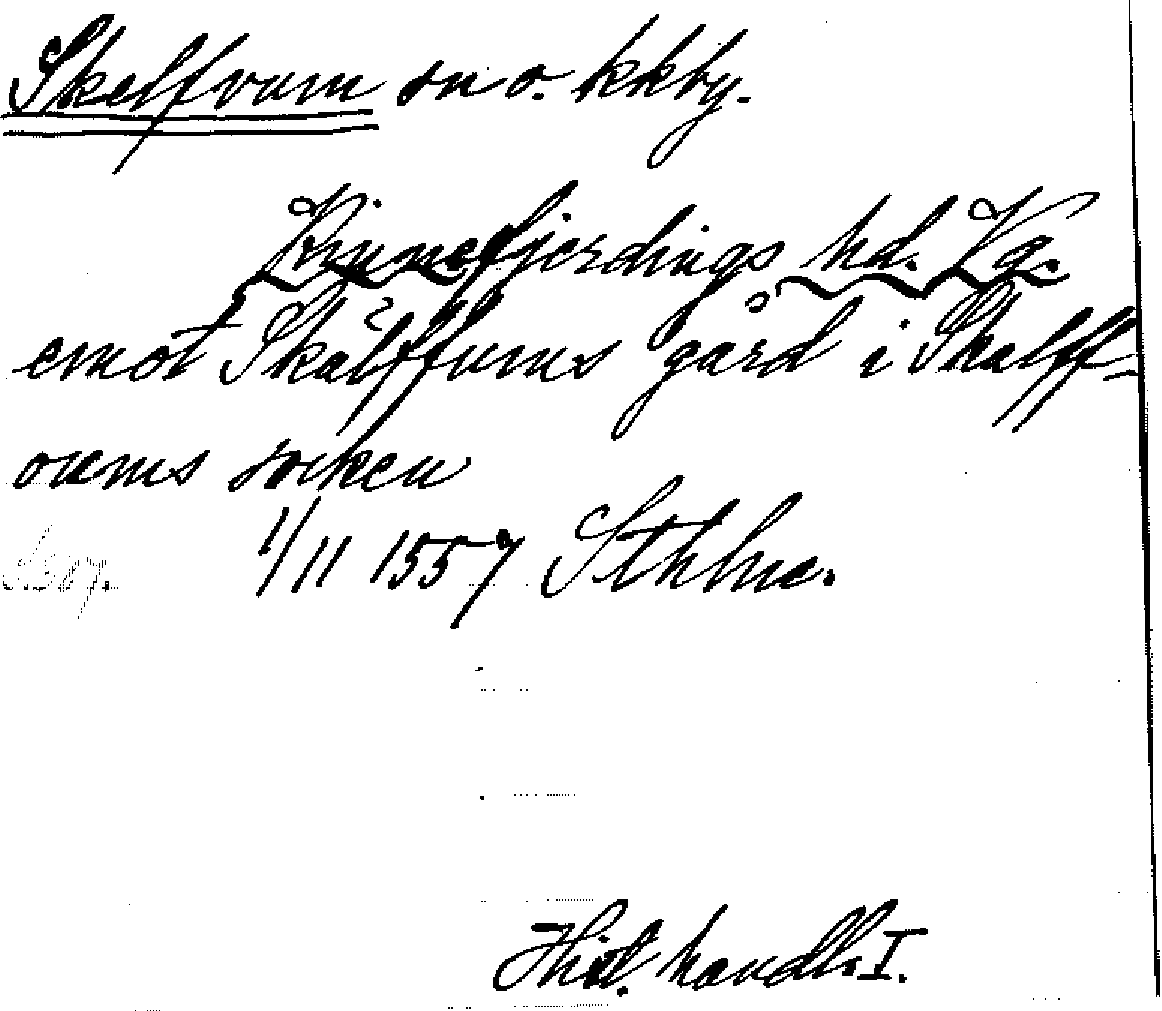 Skelfvum sn o. kkby.
Kinnefjerdings hd. Vg.
emot Skälffums gård i Skalff-
oums socken
1/11 1557 Sthlm.
Hist. handl. I.